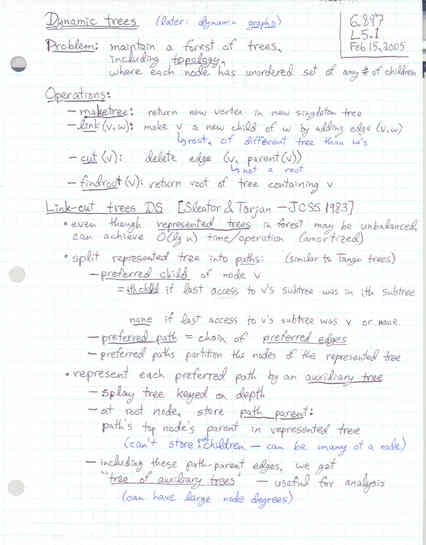 Dynamic trees (later: dynamic graphs)
6.897
L5.1
Feb 15, 2005
Problem: maintain a forest of trees,
including topology,
where each node has unordered set of any # of children
Operations:
- maketree: return new vertex in new singleton tree
- link(v,w): make v a new child of w by adding edge (v,w)
↳root, of different tree than w's
- cut(v): delete edge (v, parent(v))
↳not a root
- findroot(v): return root of tree containing v
Link-cut trees DS [Sleator & Tarjan - JCSS 1983]
• even though represented trees in forest may be unbalanced,
can achieve O(lg n) time/operation (amortized)
• split represented tree into paths: (similar to Tango trees)
- preferred child of node v
= ith child if last access to v's subtree was in ith subtree
none if last access to v's subtree was v or none
- preferred path = chain of preferred edges
- preferred paths partition the nodes of the represented tree
• represent each preferred path by an auxiliary tree
- splay tree keyed on depth
- at root node, store path parent:
path's top node's parent in represented tree
(can't store children - can be many of a node)
- including these path-parent edges, we get
"tree of auxiliary trees" - useful for analysis
(can have large node degrees)